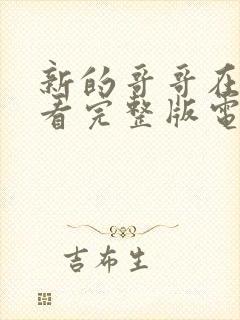 新的哥哥在
看完整版電
吉布生